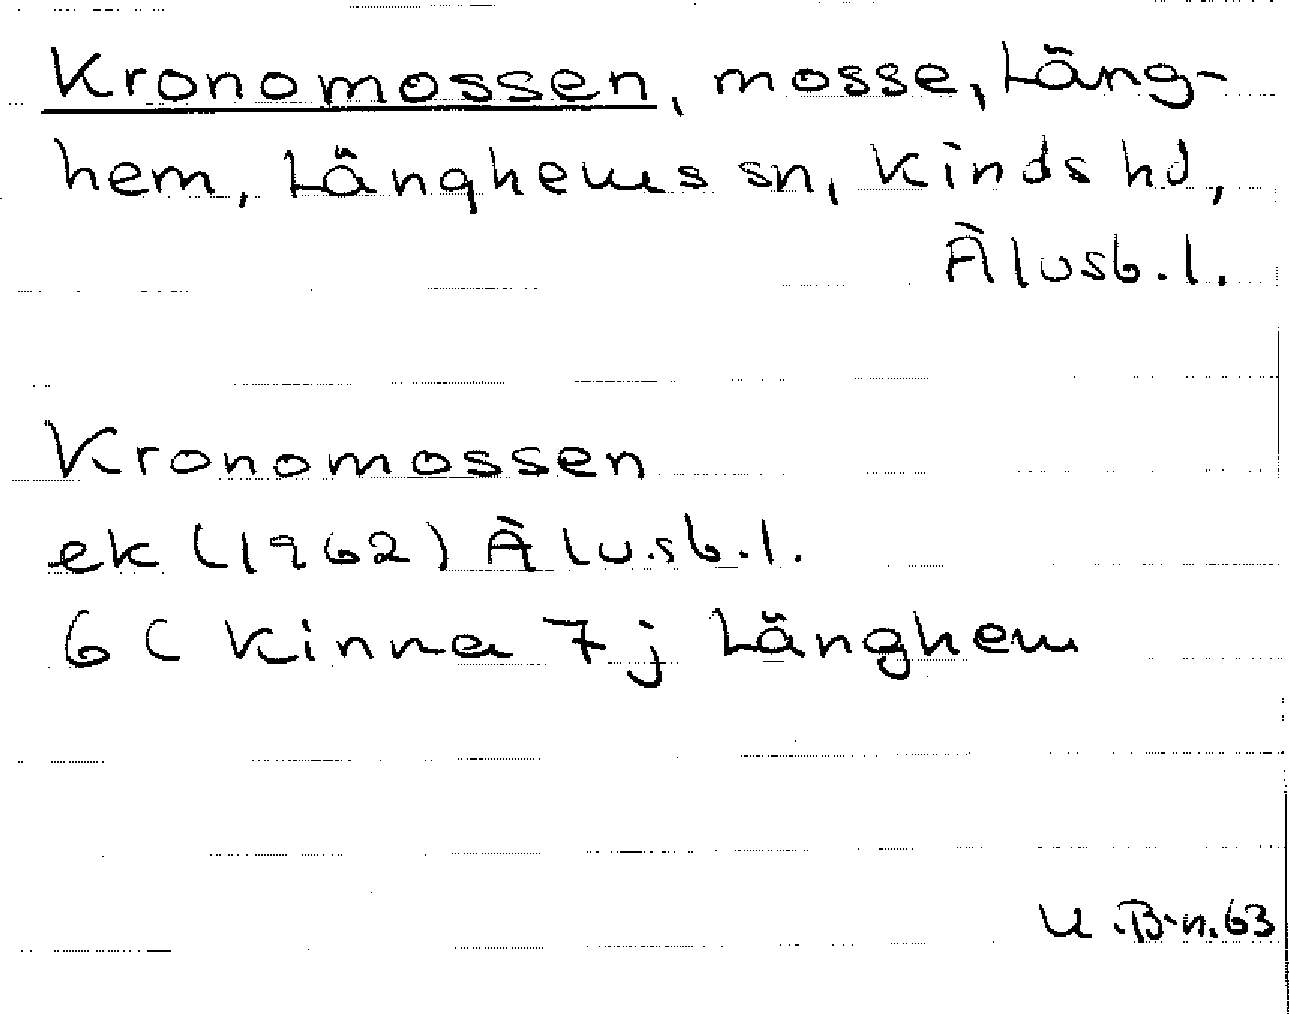 Kronomossen, mosse, Lång-
hem, Långhems sn, Kinds hd,
Älvsb.l.
Kronomossen
ek (1962) Älvsb.l.
6 C Kinna 7j Långhem
U.B-n.63